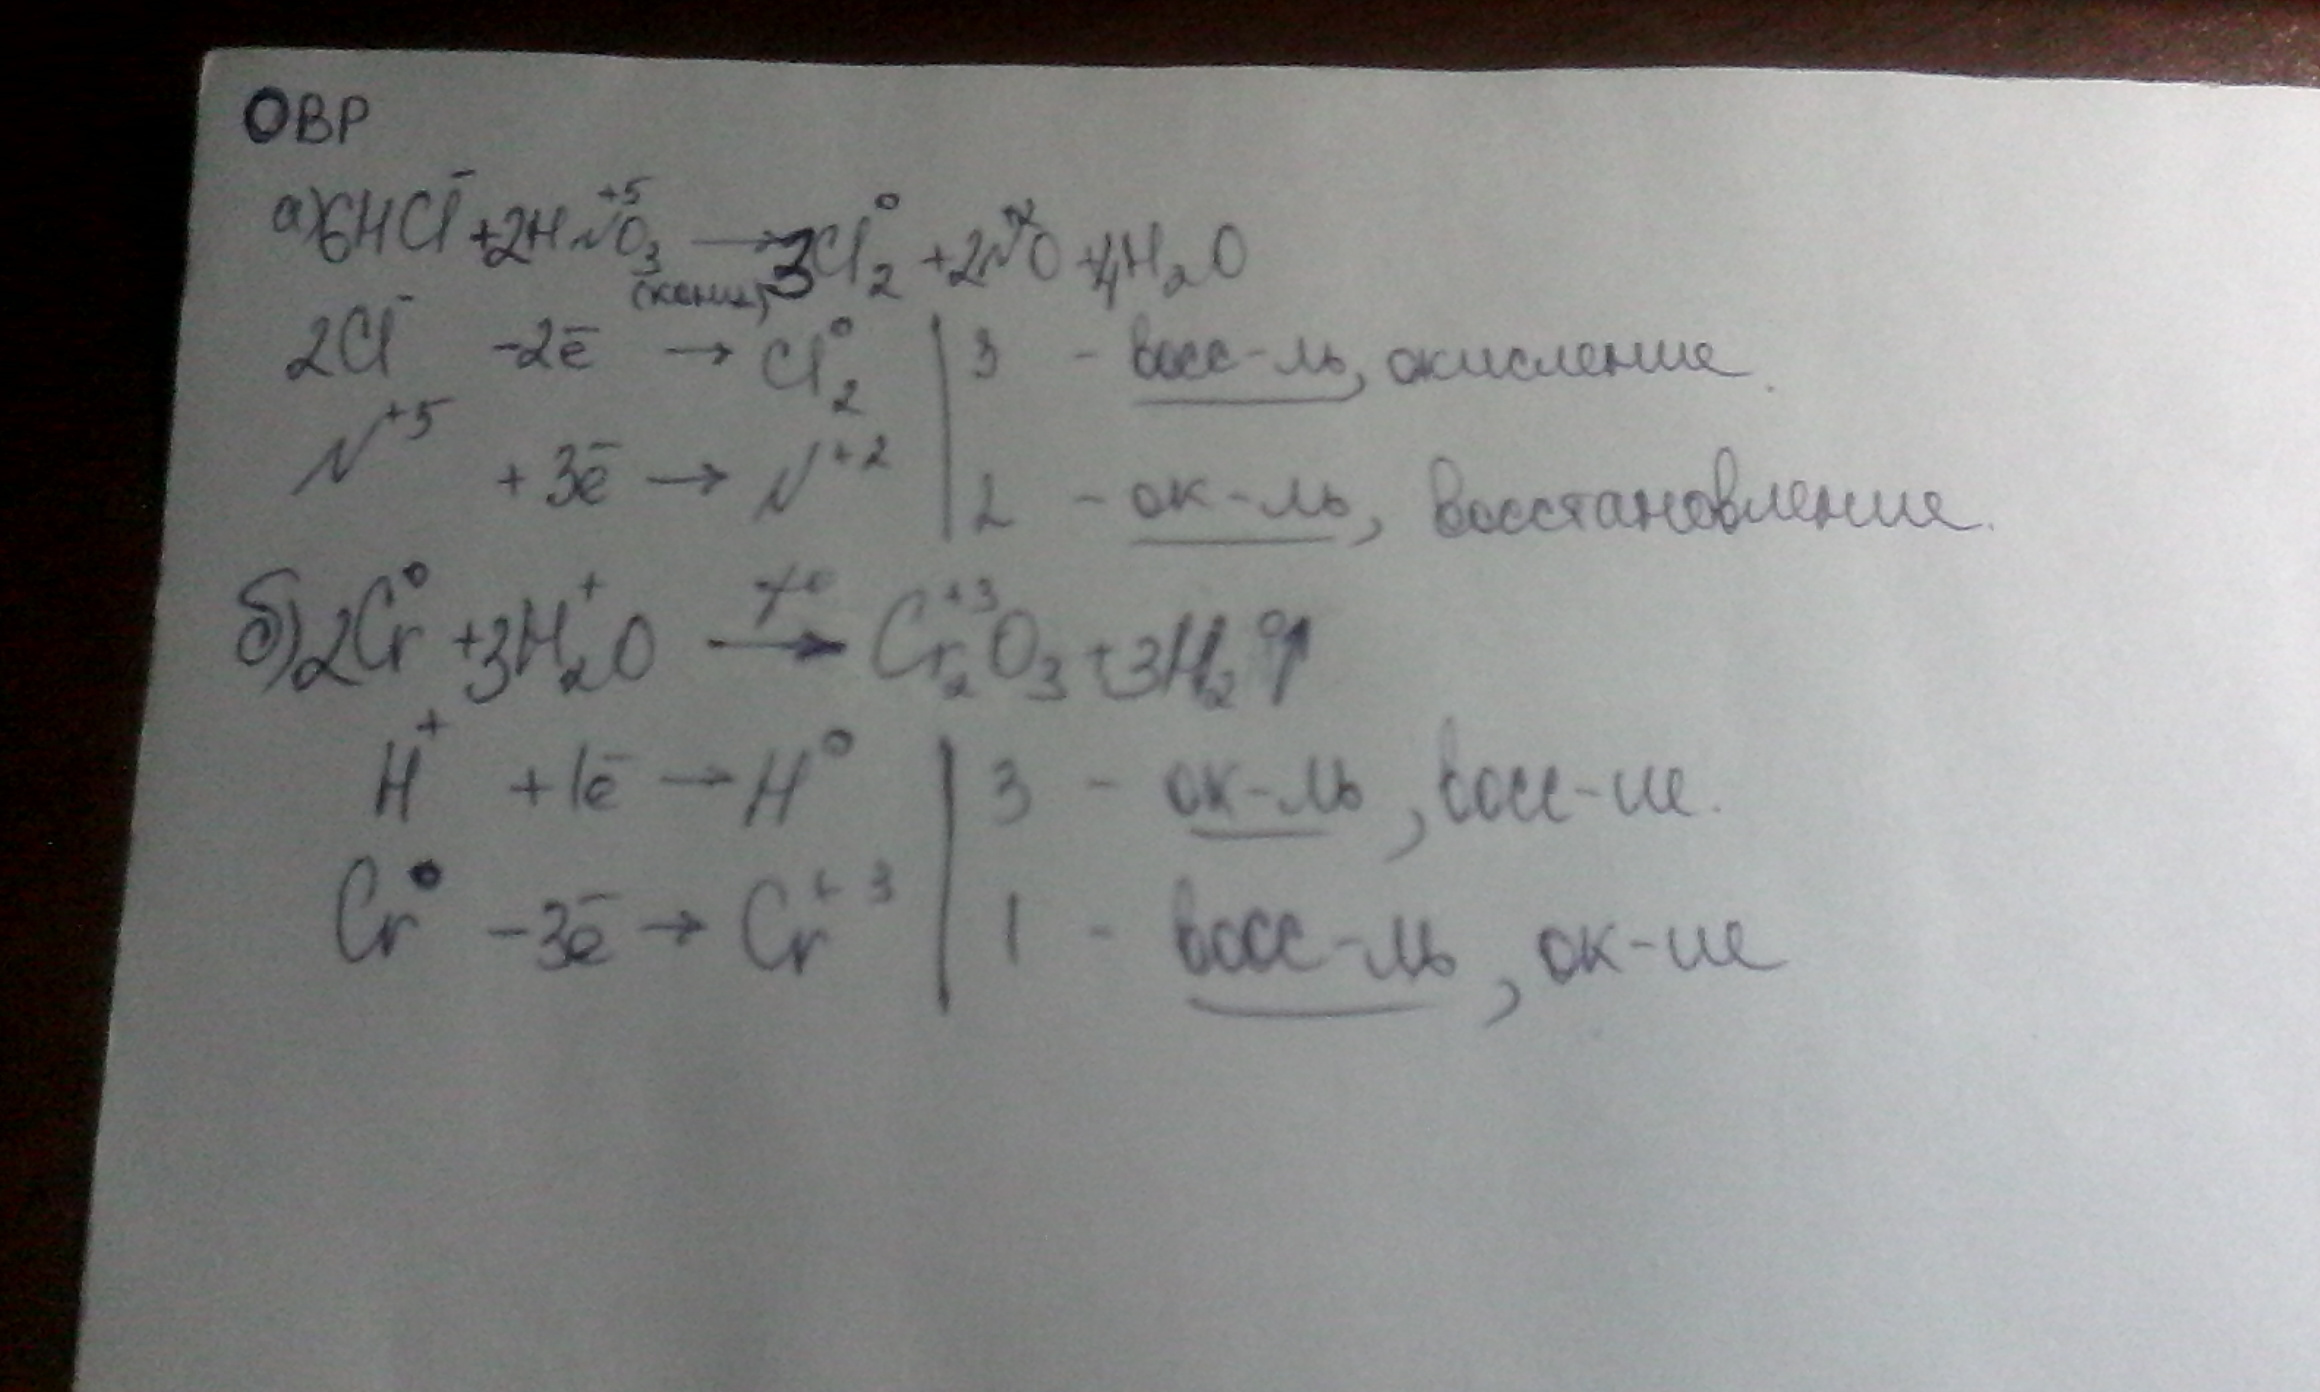 ОВР
а) 6HCl⁻ + 2HN⁺⁵O₃ (конц) → 3Cl₂⁰ + 2N⁺²O + 4H₂O
2Cl⁻ -2ē → Cl₂⁰ | 3 - восс-ль, окисление.
N⁺⁵ + 3ē → N⁺² | 2 - ок-ль, восстановление.
б) 2Cr⁰ + 3H₂⁺O t° → Cr₂⁺³O₃ + 3H₂⁰↑
H⁺ + 1ē → H⁰ | 3 - ок-ль, восс-ие.
Cr⁰ - 3ē → Cr⁺³ | 1 - восс-ль, ок-ие